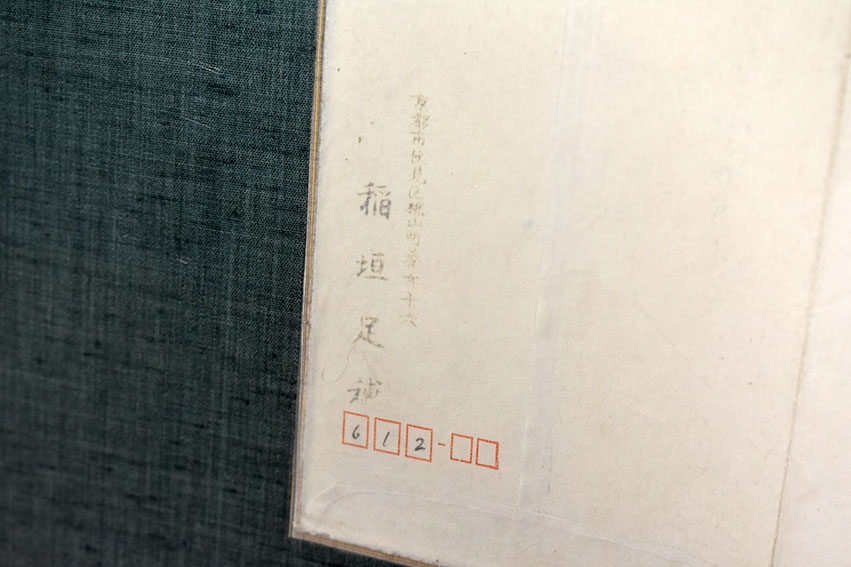 京都市伏見区桃山町養斉十六
稲垣足穂
612-